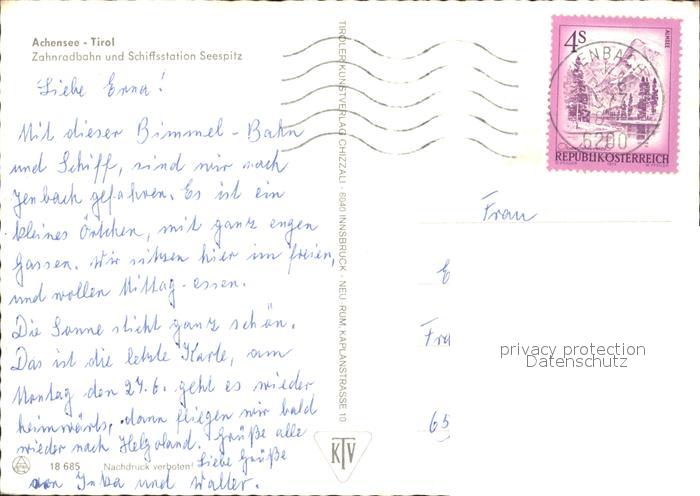 Achensee - Tirol
Zahnradbahn und Schiffsstation Seespitz
Liebe Erna!
Mit dieser Bimmel-Bahn
und Schiff, sind wir nach
Jenbach gefahren. Es ist ein
kleines Örtchen, mit ganz engen
Gassen. Wir sitzen hier im freien,
und wollen Mittag-essen.
Die Sonne sticht ganz schön.
Das ist die letzte Karte, am
Montag den 27.6. geht es wieder
heimwärts, dann fliegen wir bald
wieder nach Helgoland. Grüße alle
Liebe Grüße
von und Walter.
18 685 Nachdruck verboten!
TIROLER KUNSTVERLAG CHIZZALI - 6040 INNSBRUCK - NEU-RUM, KAPLANSTRASSE 10
KTV
4S
ALMSEE
REPUBLIK ÖSTERREICH
JENBACH
6200
Frau
E
Fra
65
privacy protection
Datenschutz